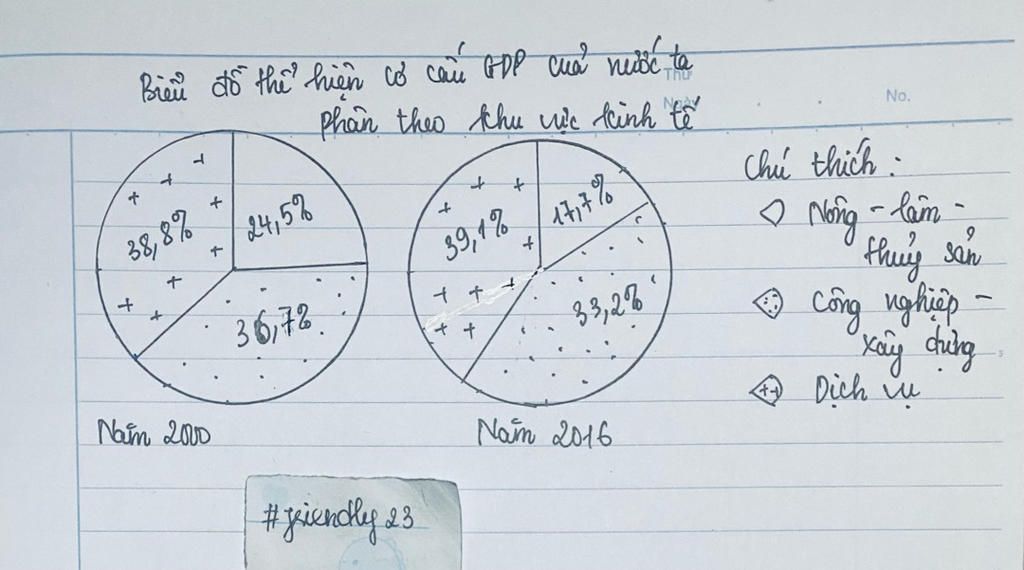 Biểu đồ thể hiện cơ cấu GDP của nước ta
phân theo khu vực kinh tế
Thứ
Ngày
No.
38,8%
24,5%
36,7%
Năm 2000
39,1%
17,7%
33,2%
Năm 2016
Chú thích:
Nông - lâm -
thuỷ sản
Công nghiệp -
xây dựng
Dịch vụ
#friendly23